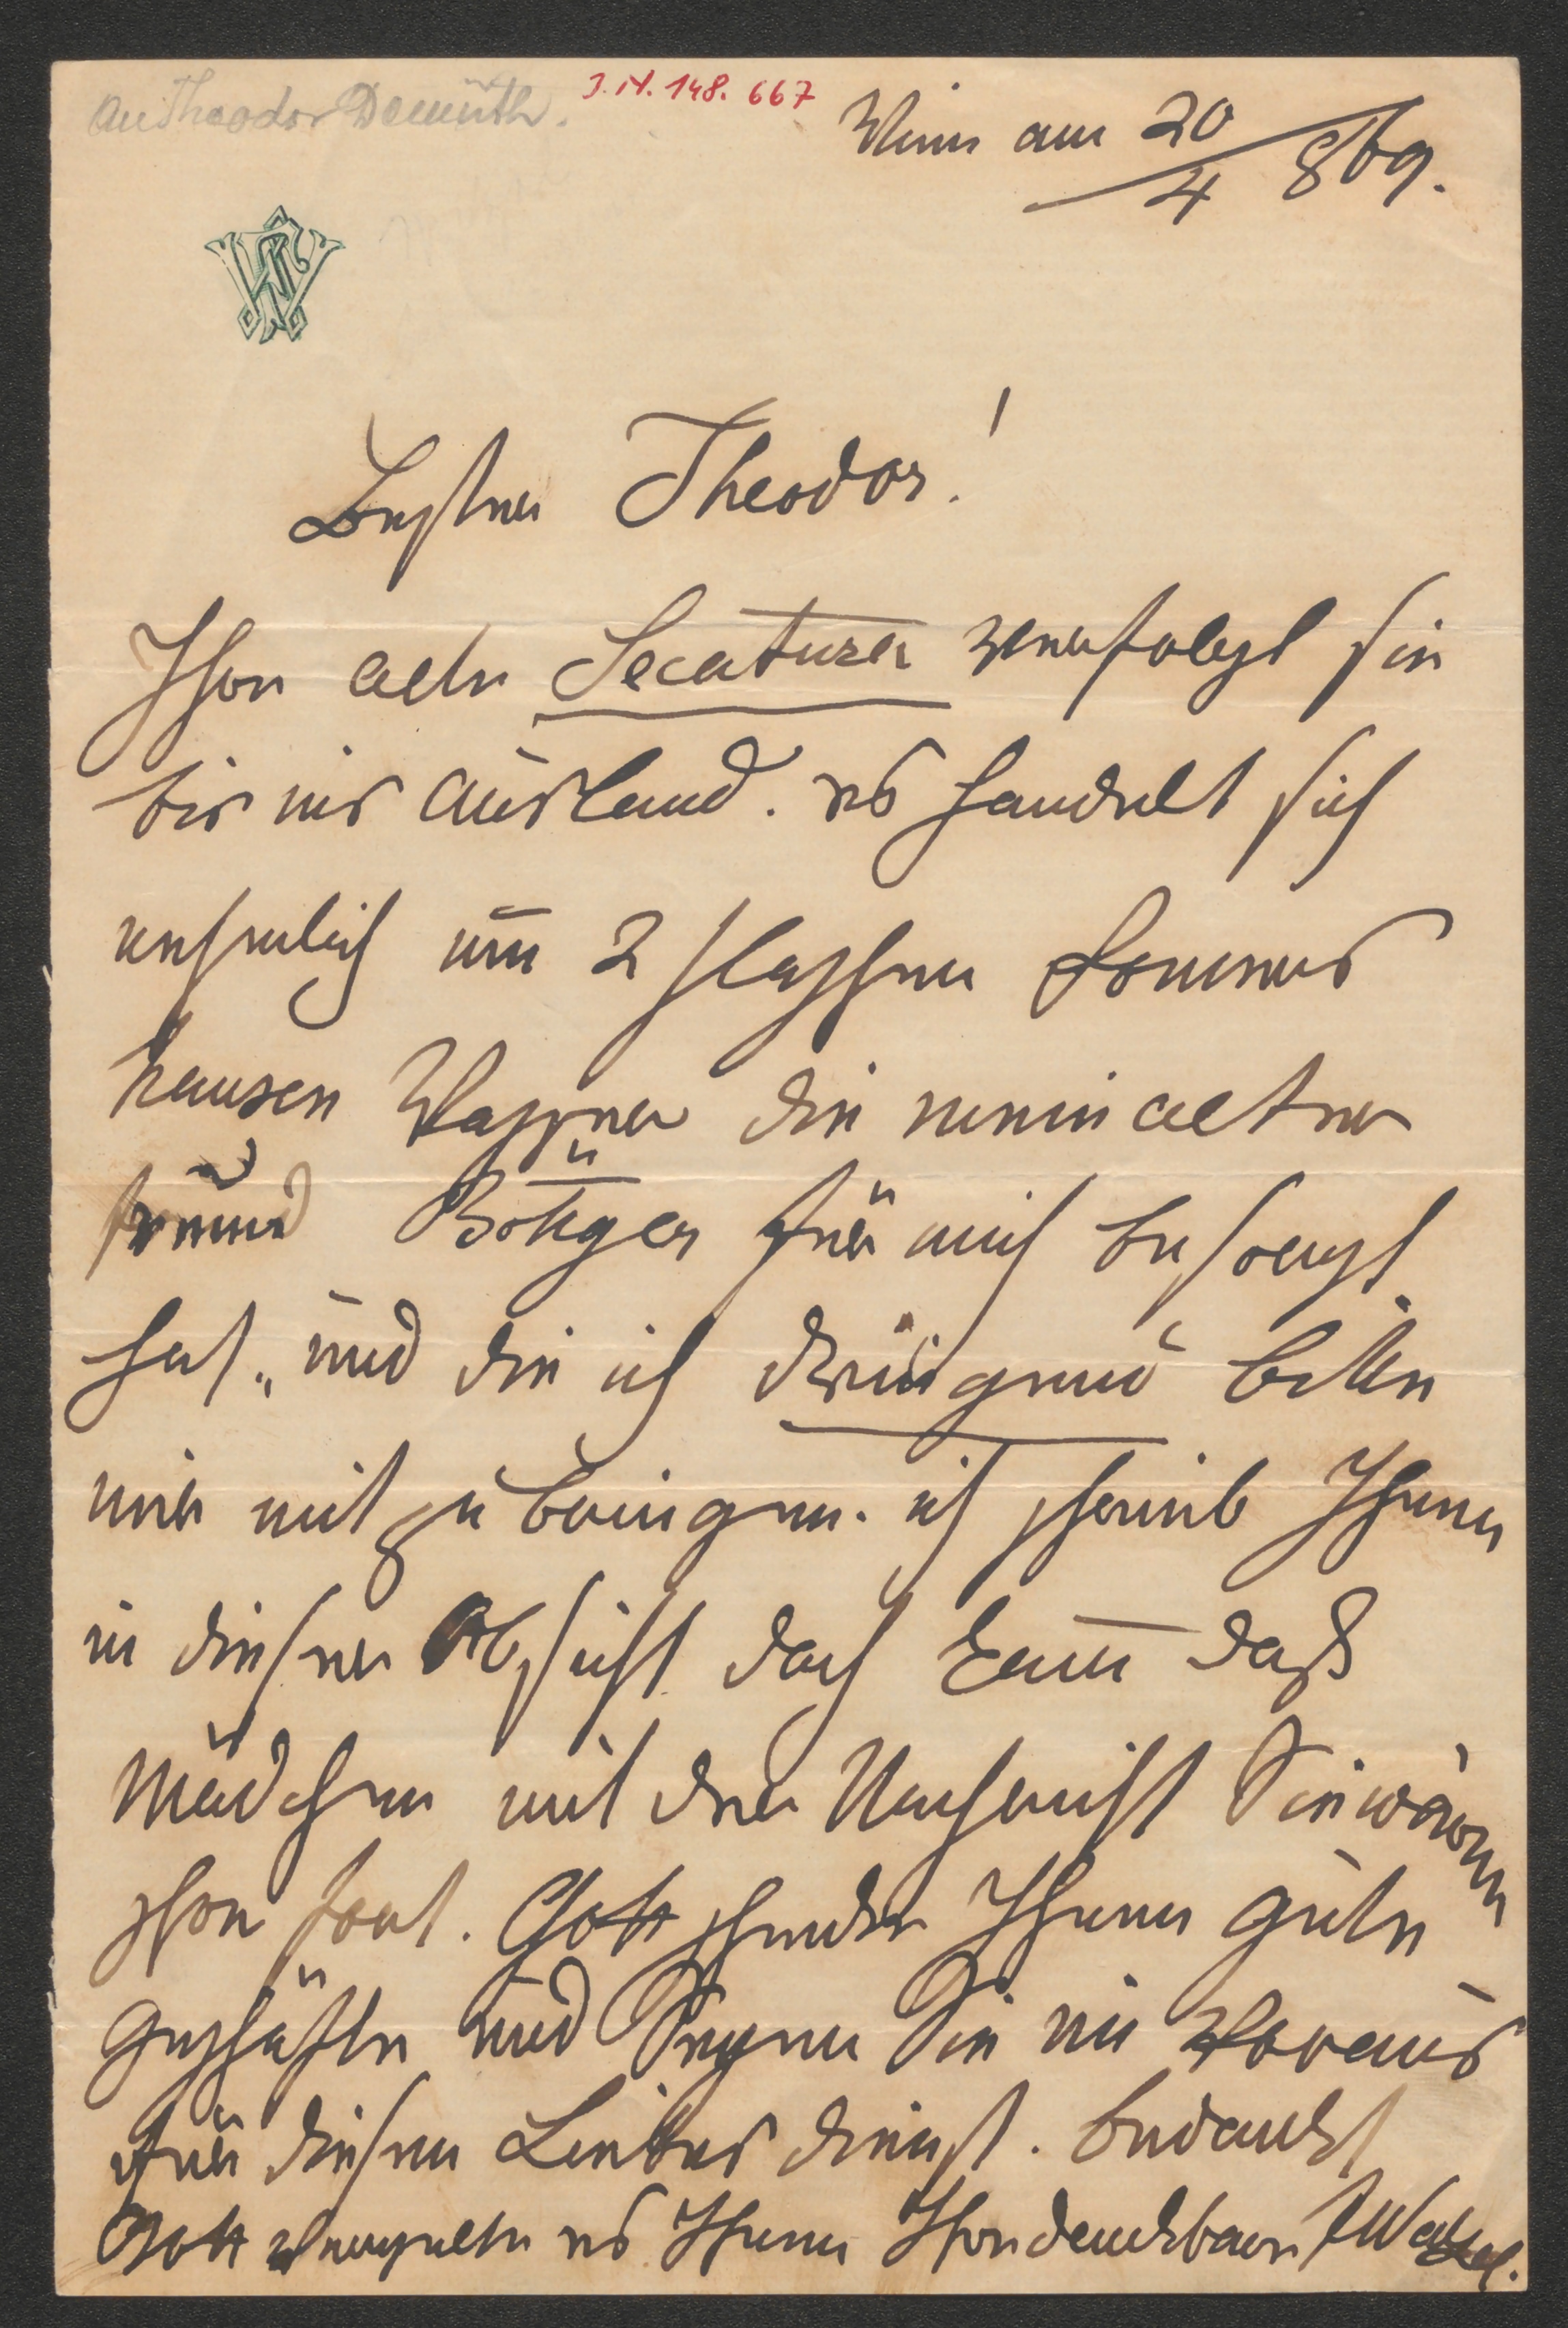 An Theodor Demuth.
I.N. 148.667
Wien am 20/4 869.
Bester Theodor!
Ihre alte Secatura verfolgt sie
bis ins Ausland. es handelt sich
nehmlich um 2 flaschen
hausen Wasser die mein alter
freund Böttger für mich besorgt
hat, und die ich dringend bitte
mir mit zu bringen. ich schreib Ihnen
in dieser Absicht doch kam daß
Mädchen mit der Nachricht Sie wären
schon fort. Gott schenke Ihnen gute
geschäfte und Seyen Sie im Voraus
für diesen Liebes dienst. bedankt
Gott vergelte es Ihnen Ihre dankbare